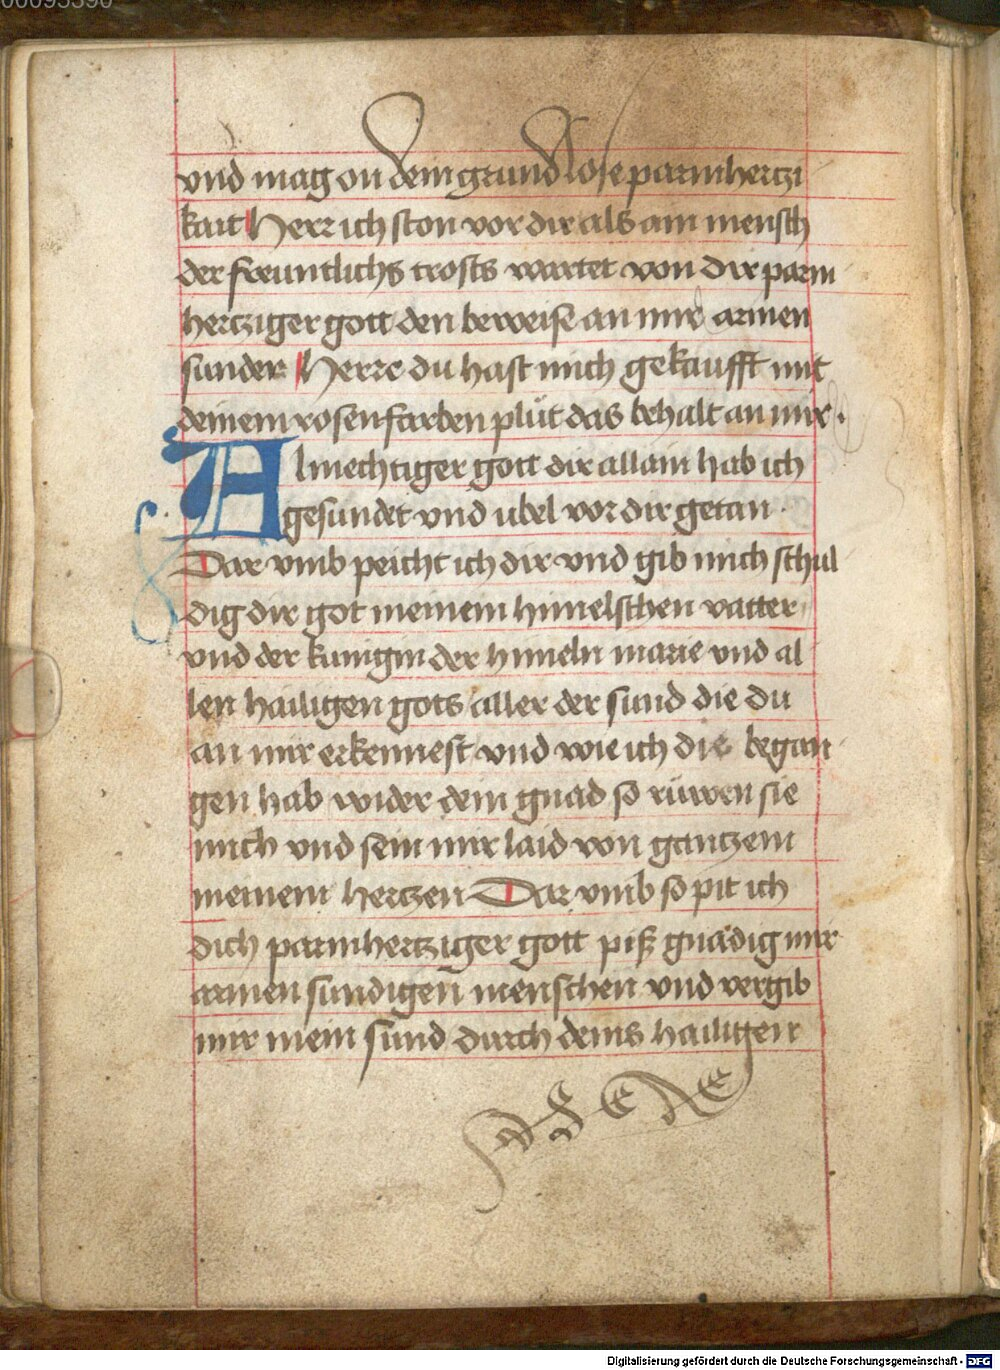 00095390
vnd mag on dein grundlose parmhertzi
kait Herr ich ston vor dir als ain mensch
der freuntlichs trosts wartet von dir parm
hertziger gott den beweise an mir armen
sunder Herre du hast mich gekaufft mit
deinem rosenfarben plut das behalt an mir.
Almechtiger gott dir allain hab ich
gesundet vnd ubel vor dir getan.
Dar vmb peicht ich dir vnd gib mich schul
dig dir got meinem himelschen vatter
vnd der kunigin der himeln marie vnd al
len hailigen gots aller der sund die du
an mir erkennest vnd wie ich die began
gen hab wider dein gnad so rüwen sie
mich vnd sein mir laid von gantzem
meinem hertzen Dar vmb so pit ich
dich parmhertziger gott piß gnädig mir
armen sundigen menschen vnd vergib
mir mein sund durch deins hailigen
Digitalisierung gefördert durch die Deutsche Forschungsgemeinschaft - DFG